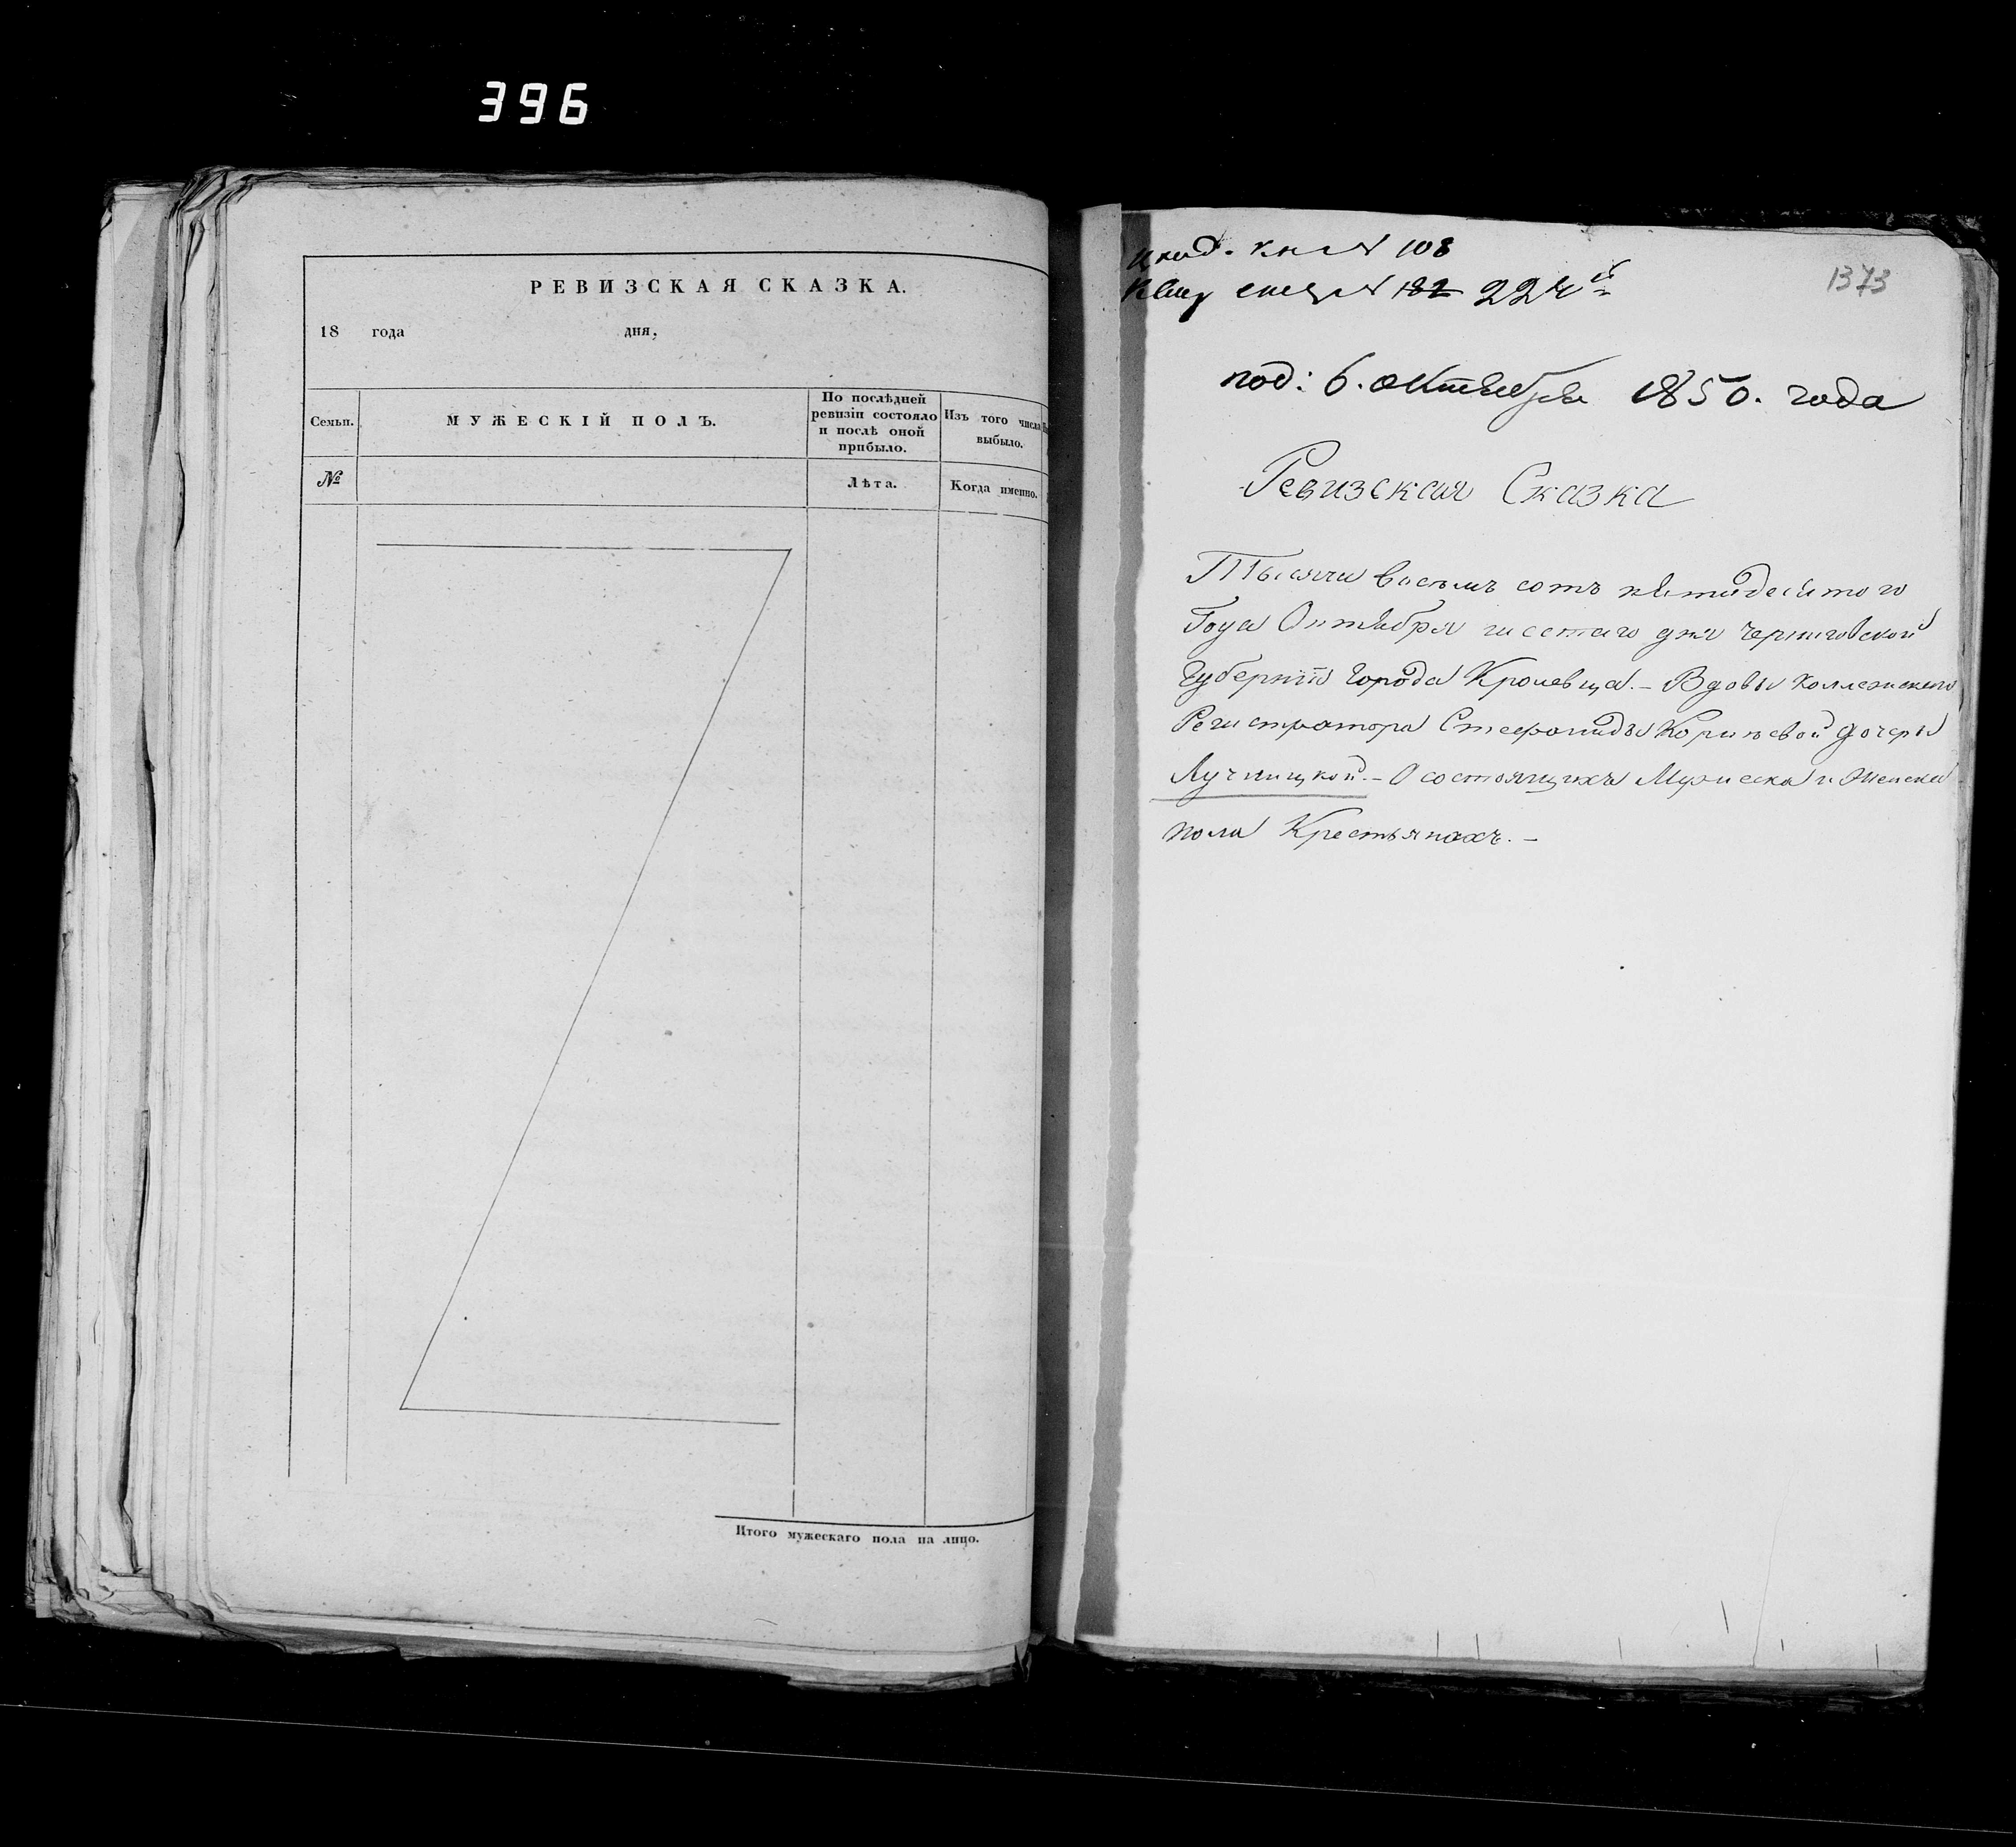 396
РЕВИЗСКАЯ СКАЗКА.
18 года дня,
Семьи.
МУЖЕСКІЙ ПОЛЪ.
По послѣдней
ревизіи состояло
и послѣ оной
прибыло.
Изъ того числа
выбыло.
№
Лѣта.
Когда именно.
Итого мужескаго пола на лицо.
1373
кн № 108
№ 182 224
под: 6. октября 1850. года
Ревизская Сказка
Тысяча восемь сотъ пятидесятого
Года Октября шестаго дня Черниговской
Губерніи Города Кролевца. – Вдовы Коллежскаго
Регистратора Стефаниды Корнѣевой дочери
Лучницкой. – О состоящихъ Мужеска и Женска
пола Крестьянахъ. –